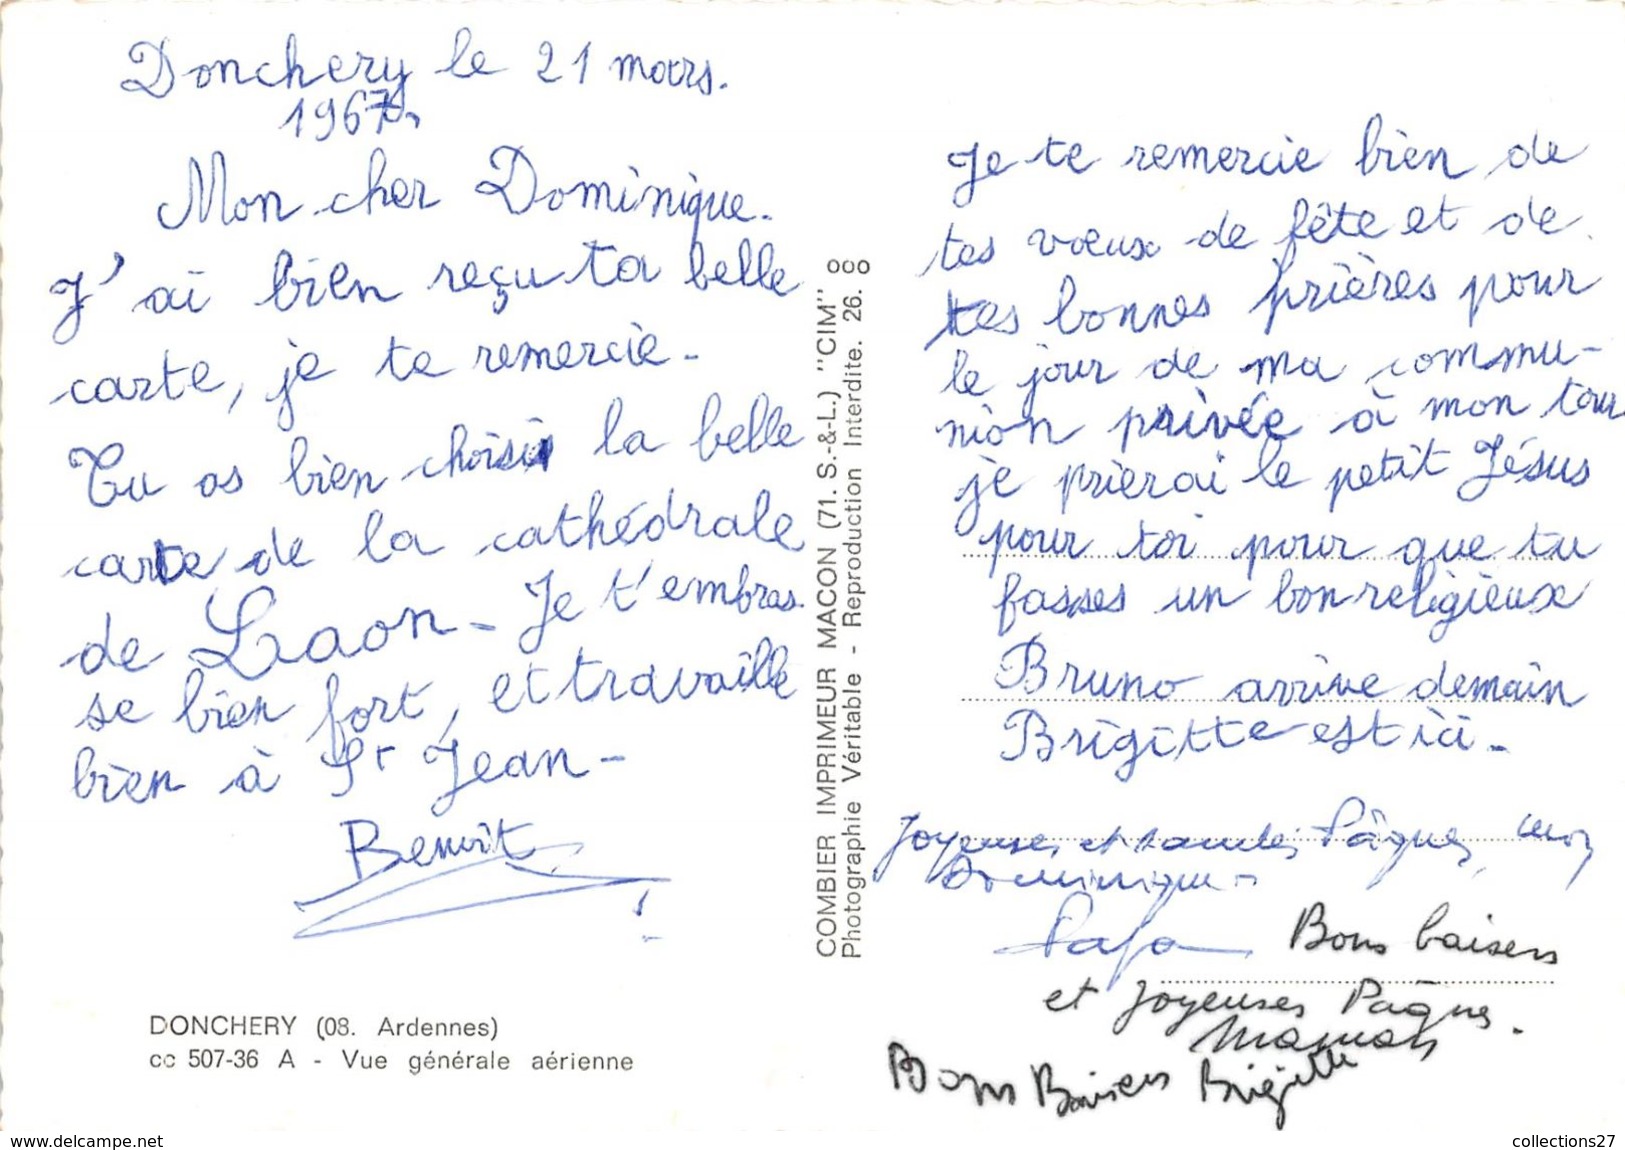 Donchery le 21 mars.
1967.
Mon cher Dominique.
J'ai bien reçu ta belle
carte, je te remercie.
Tu as bien choisi la belle
carte de la cathédrale
de Laon. Je t'embras.
se bien fort, et travaille
bien à St Jean.
Benoît
DONCHERY (08. Ardennes)
cc 507-36 A - Vue générale aérienne
COMBIER IMPRIMEUR MACON (71. S.-&-L.) "CIM"
Photographie Véritable - Reproduction Interdite. 26. 000
Je te remercie bien de
tes vœux de fête et de
tes bonnes prières pour
le jour de ma commu-
nion privée à mon tour
je prierai le petit Jésus
pour toi pour que tu
fasses un bon religieux
Bruno arrive demain
Brigitte est ici.
Joyeuses et saintes Pâques, mon
Dominique.
Papa Bons baisers
et Joyeuses Pâques.
Maman
Bons Baisers Brigitte
www.delcampe.net
collections27